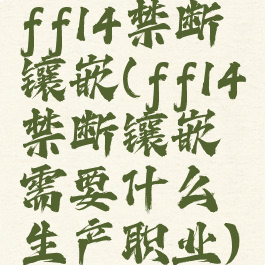 ff14禁断
镶嵌(ff14
禁断镶嵌
需要什么
生产职业)